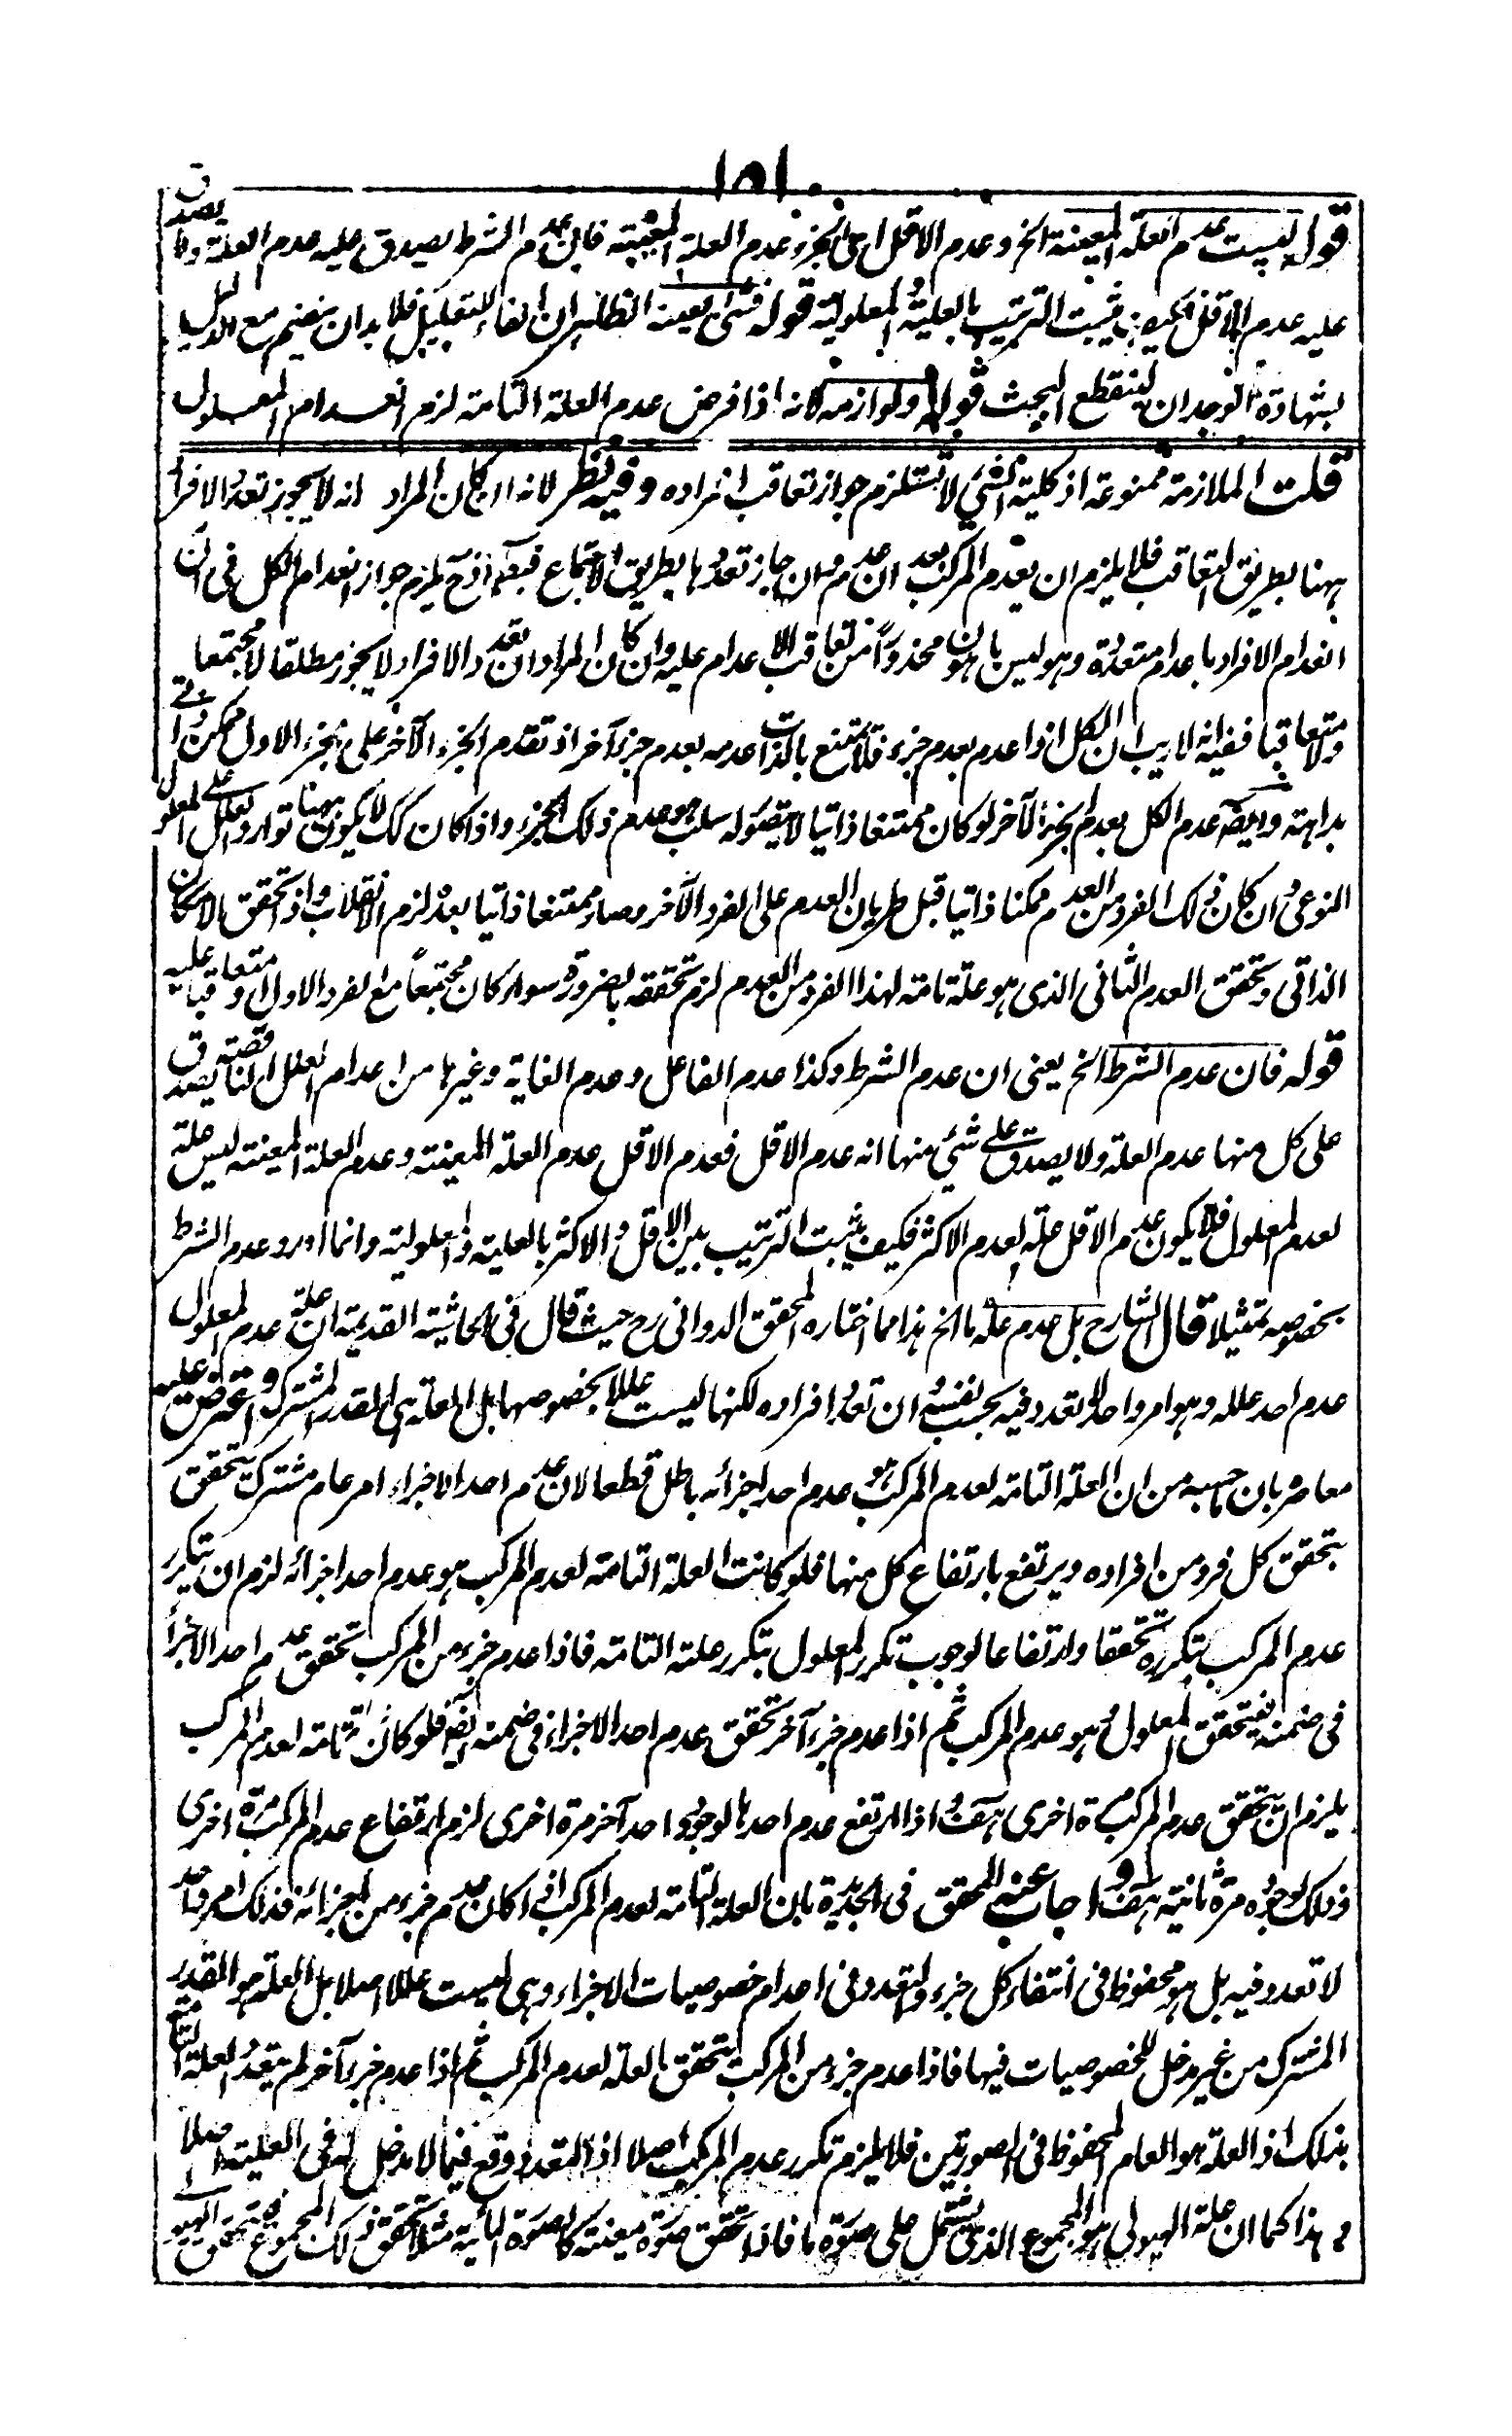 ١٥١
قوله ليست عدم العلة المعينة الخ وعدم الاقل اى الجزء عدم العلة المعينة فان عدم الشرط يصدق عليه عدم العلة ولا يصدق
عليه عدم الاقل فكيف يثبت الترتيب بالعلية والمعلولية قوله فشئ بعينه الظاهر ان الفاء للتعليل فلا بدان ينضم مع الدليل
بشهادة الوجدان لينقطع البحث قوله ولوازمه لانه اذا فرض عدم العلة التامة لزم انعدام المعلول
قلت الملازمة ممنوعة اذ كلية الشئ لا تستلزم جواز تعاقب افراده وفيه نظر لانه ان كان المراد انه لا يجوز تعدد الافراد
ههنا بطريق التعاقب فلا يلزم ان يعدم المركب بعد ان عدم وان جاز تعددها بطريق الاجتماع ففيه اذ ح يلزم جواز انعدام الكل فى آن
انعدام الافراد باعدام متعددة وهو ليس باهون محذورا من تعاقب الاعدام عليه وان كان المراد ان تعدد الافراد لا يجوز مطلقا لا مجتمعا
ولا متعاقبا ففيه انه لا ريب ان الكل اذا عدم بعدم جزء فلا يمتنع بالذات عدمه بعدم جزء آخر اذ تقدم الجزء الآخر على الجزء الاول ممكن
بداهة وايضا عدم الكل بعدم الجزء الآخر لو كان ممتنعا ذاتيا لا يتصور له سلب هو عدم ذلك الجزء واذا كان كك لا يكون ههنا توارد العلل على المعلول
النوعى وان كان ذلك الفرد من العدم ممكنا ذاتيا قبل طريان العدم على الفرد الآخر وصار ممتنعا ذاتيا بعده لزم الانقلاب واذ تحقق الامكان
الذاتى وتحقق العدم الثانى الذى هو علة تامة لهذا الفرد من العدم لزم تحققه بالضرورة سواء كان مجتمعا مع الفرد الاول او متعاقبا عليه
قوله فان عدم الشرط الخ يعنى ان عدم الشرط وكذا عدم الفاعل وعدم الغاية وغيرها من اعدام العلل الناقصة يصدق
على كل منها عدم العلة ولا يصدق على شئ منها انه عدم الاقل فعدم الاقل عدم العلة المعينة وعدم العلة المعينة ليس علة
لعدم المعلول فلا يكون عدم الاقل علة لعدم الاكثر فكيف يثبت الترتيب بين الاقل والاكثر بالعلية والمعلولية وانما اورد عدم الشرط
بخصوصه تمثيلا قال الشارح بل عدم علة ما الخ هذا مما اختاره المحقق الدوانى رح حيث قال فى الحاشية القديمة ان علة عدم المعلول
عدم احد علله وهو امر واحد لا تعدد فيه بحسب نفسه وان تعدد افراده لكنها ليست عللا بخصوصها بل العلة هى القدر المشترك واعترض عليه
معاصره بان ما ذهب من ان العلة التامة لعدم المركب هو عدم احد اجزائه باطل قطعا لان عدم احد الاجزاء امر عام مشترك يتحقق
بتحقق كل فرد من افراده ويرتفع بارتفاع كل منها فلو كانت العلة التامة لعدم المركب هو عدم احد اجزائه لزم ان يتكرر
عدم المركب بتكرره تحققا وارتفاعا لوجوب تكرر المعلول بتكرر علته التامة فاذا عدم جزء من المركب تحقق عدم احد الاجزاء
فى ضمنه فيتحقق المعلول وهو عدم المركب ثم اذا عدم جزء آخر تحقق عدم احد الاجزاء فى ضمنه ايضا فلو كان علة تامة لعدم المركب
يلزم ان يتحقق عدم المركب مرة اخرى هف واذا ارتفع عدم احدها لوجود احد آخر مرة اخرى لزم ارتفاع عدم المركب مرة اخرى
وذلك لوجوده مرة ثانية هف واجاب عنه المحقق فى الجديدة بان العلة التامة لعدم المركب اذا كان عدم جزء من اجزائه فذلك امر واحد
لا تعدد فيه بل هو محفوظ فى انتفاء كل جزء والتعدد فى اعدام خصوصيات الاجزاء وهى ليست عللا اصلا بل العلة هو القدر
المشترك من غير مدخل للخصوصيات فيها فاذا عدم جزء من المركب يتحقق العلة لعدم المركب ثم اذا عدم جزء آخر لم يتعدد العلة التامة
بذلك اذ العلة هو العام المحفوظ فى الصورتين فلا يلزم تكرر عدم المركب اصلا اذ التعدد وقع فيما لا مدخل له فى العلية اصلا
هذا كما ان علة الهيولى هو المجموع الذى يشتمل على صورة ما فاذا تحقق صورة معينة كالصورة المائية مثلا تحقق ذلك المجموع فتحقق الهيولى